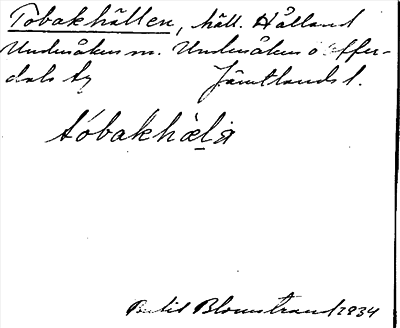 Tobakhällen, häll. Hålland
Undersåkers sn. Undersåkers o. Offer-
dals tg Jämtlands l.
tóbakhæ̀la
Bertil Blomstrand 1934